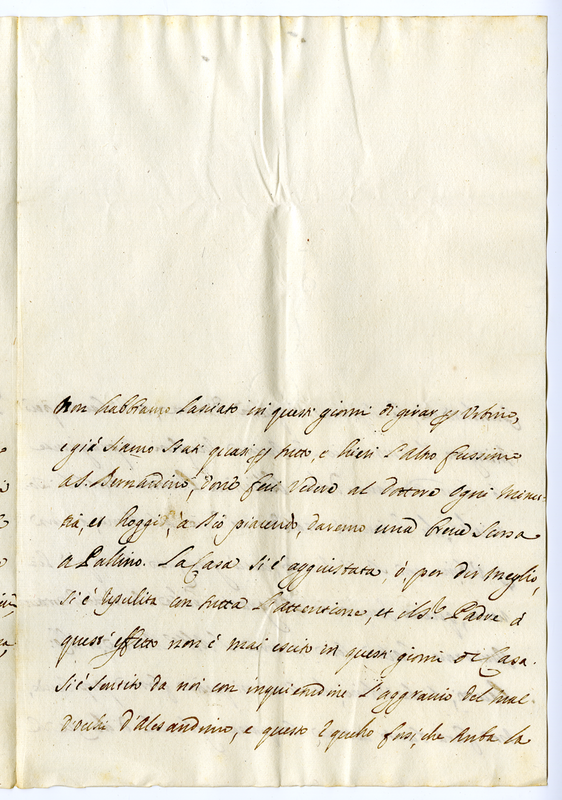 Non habbiamo lasciato in questi giorni di girar p Urbino,
e già siamo stati quasi p tutto, e hieri l'altro fussimo
a S. Bernardino, dove feci vedere al Dottore ogni minu-
tia, et hoggi, à Dio piacendo, daremo una breve scorsa
a Pallino. La Casa si è aggiustata, ò, per dir meglio,
si è ripulita con tutta l'attentione, et il Sr. Padre à
quest'effetto non è mai escito in questi giorni di Casa.
Si è sentito da noi con inquietudine l'aggravio del mal
d'occhi d'Alesandrino, e questo è quello forsi, che turba la